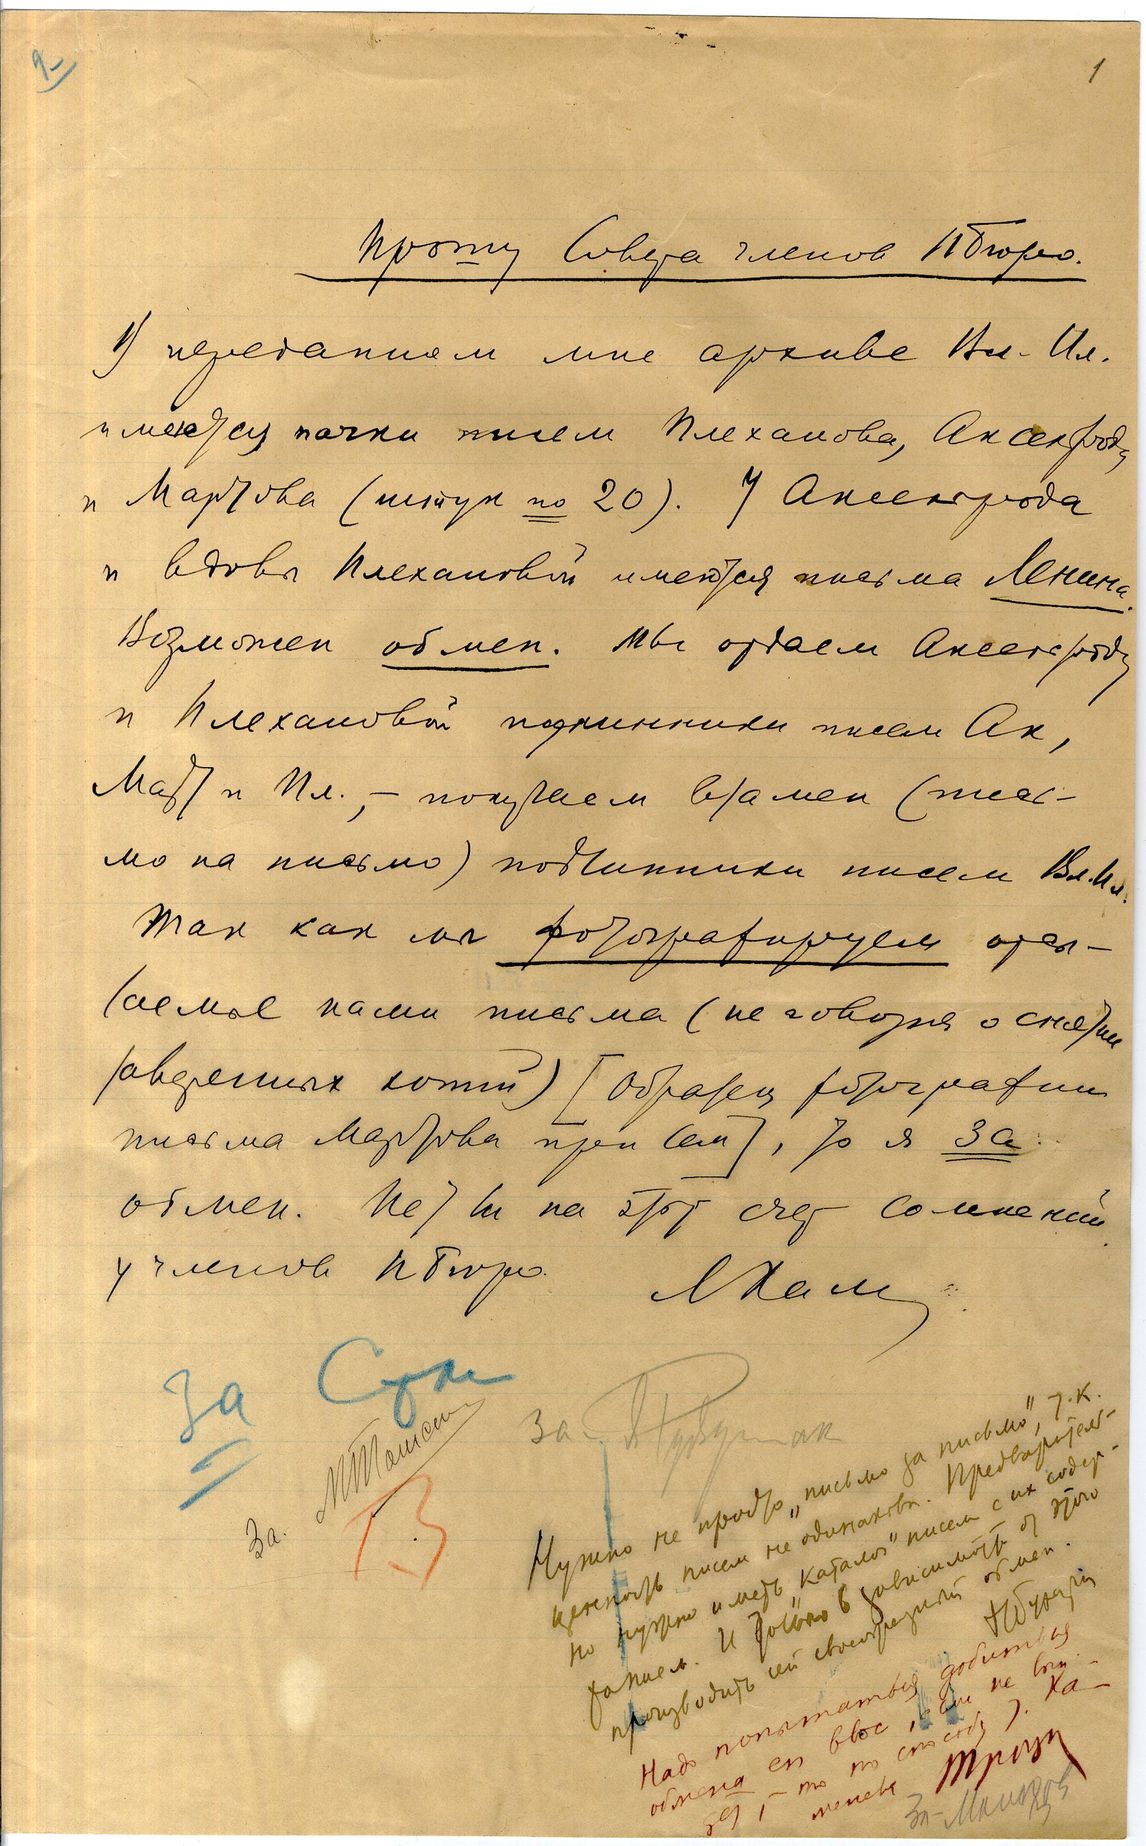 2
1
Прошу Совета членов ПБюро.
1) переданном мне архиве Вл. Ил.
имеются пачки писем Плеханова, Аксельрода
и Мартова (штук по 20). У Аксельрода
и вдовы Плехановой имеются письма Ленина.
Возможен обмен. Мы отдаем Аксельроду
и Плехановой подлинники писем Ак,
Март и Пл., – получаем взамен (пись-
мо на письмо) подлинники писем Вл. Ил.
Так как мы фотографируем отсы-
лаемые нами письма (не говоря о снятии
заверенных копий) [образец фотографии
письма Мартова при сем], то я за
обмен. Нет ли на этот счет сомнений
у членов ПБюро.
Л Кам
За
За. М Томский
За
Нужно не просто „письмо за письмо", т.к.
ценность писем не одинакова. Предваритель-
но нужно иметь „каталог" писем с их содер-
жанием. И только в зависимости от этого
производить сей своеобразный обмен.
Н Бухарин
Надо попытаться добиться
обмена en bloc, если не вый-
дет, – то по способу т. Ка-
менева Троцк
За – Молотов